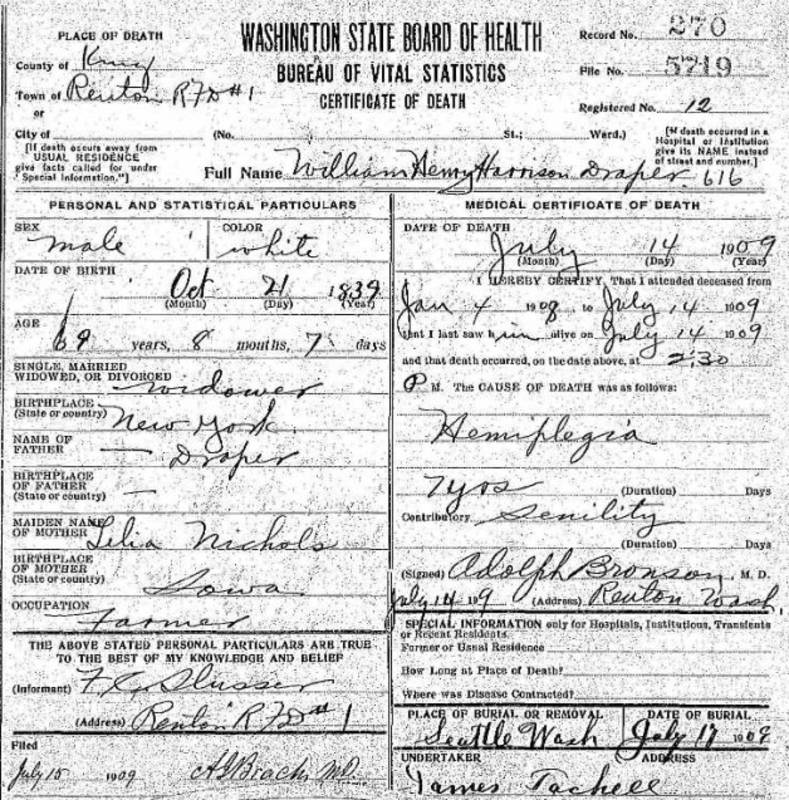 PLACE OF DEATH
County of King
Town of Renton RFD#1
or
City of (No. St.; Ward.)
[If death occurs away from
USUAL RESIDENCE
give facts called for under
"Special Information."]
WASHINGTON STATE BOARD OF HEALTH
BUREAU OF VITAL STATISTICS
CERTIFICATE OF DEATH
Record No. 270
File No. 5719
Registered No. 12
[If death occurred in a
Hospital or Institution
give its NAME instead
of street and number.]
Full Name William Henry Harrison Draper 616
PERSONAL AND STATISTICAL PARTICULARS
SEX
male
COLOR
white
DATE OF BIRTH
Oct 21 1839
(Month) (Day) (Year)
AGE
69 years, 8 months, 7 days
SINGLE, MARRIED
WIDOWED, OR DIVORCED widower
BIRTHPLACE
(State or country) New York
NAME OF
FATHER — Draper
BIRTHPLACE
OF FATHER
(State or country) —
MAIDEN NAME
OF MOTHER Lelia Nichols
BIRTHPLACE
OF MOTHER
(State or country) Iowa
OCCUPATION
Farmer
THE ABOVE STATED PERSONAL PARTICULARS ARE TRUE
TO THE BEST OF MY KNOWLEDGE AND BELIEF
(Informant) Slusser
(Address) Renton RFD#1
Filed
July 15 1909 M.D.
MEDICAL CERTIFICATE OF DEATH
DATE OF DEATH
July 14 1909
(Month) (Day) (Year)
I HEREBY CERTIFY, That I attended deceased from
Jan 4 1908, to July 14 1909
that I last saw him alive on July 14 1909
and that death occurred, on the date above, at 2:30
P M. The CAUSE OF DEATH was as follows:
Hemiplegia
7 yrs (Duration) Days
Contributory Senility
(Duration) Days
(Signed) Adolph Bronson, M. D.
July 14 1909 (Address) Renton Wash.
SPECIAL INFORMATION only for Hospitals, Institutions, Transients
or Recent Residents.
Former or Usual Residence
How Long at Place of Death?
Where was Disease Contracted?
PLACE OF BURIAL OR REMOVAL
Seattle Wash
DATE OF BURIAL
July 17 1909
UNDERTAKER
ADDRESS
James